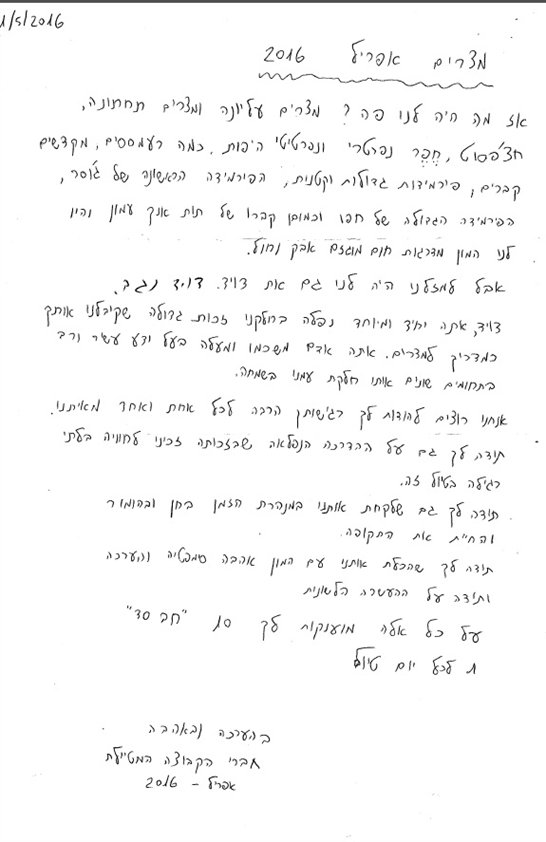 1/5/2016
מצרים אפריל 2016
אז מה היה לנו פה? מצרים עליונה ומצרים תחתונה,
חצ'פסוט, חֶפֶר נפרטרי ונפרטיטי היפות. כמה רעמססים, מקדשים
קברים, פירמידות גדולות וקטנות, הפירמידה הראשונה של ג'וסר,
הפירמידה הגדולה של חפו וכמובן קברו של תות אנך עמון והיו
לנו המון מדרגות חום מוגזם אבק וחול.
אבל למזלנו היה לנו גם את דויד. דויד נגב.
דויד, אתה יחיד ומיוחד נפלה בחלקנו זכות גדולה שקיבלנו אותך
כמדריך למצרים. אתה אדם משכמו ומעלה בעל ידע עשיר ורב
בתחומים שונים אותו חלקת עמנו בשמחה.
אנחנו רוצים להודות לך רגישותך הרבה לכל אחת ואחד מאיתנו.
תודה לך גם על ההדרכה הנפלאה שבזכותה זכינו לחוויה בלתי
רגילה בטיול זה.
תודה לך גם שלקחת אותנו במנהרת הזמן בחן ובהומור
והחיית את התקופה.
תודה לך שהכלת אותנו עם המון אהבה סמפטיה והערכה
ותודה על ההעשרה הלשונית
על כל אלה מוענקות לך 10 "חב סד"
1 לכל יום טיול
בהערכה ובאהבה
חברי הקבוצה המטיילת
אפריל - 2016